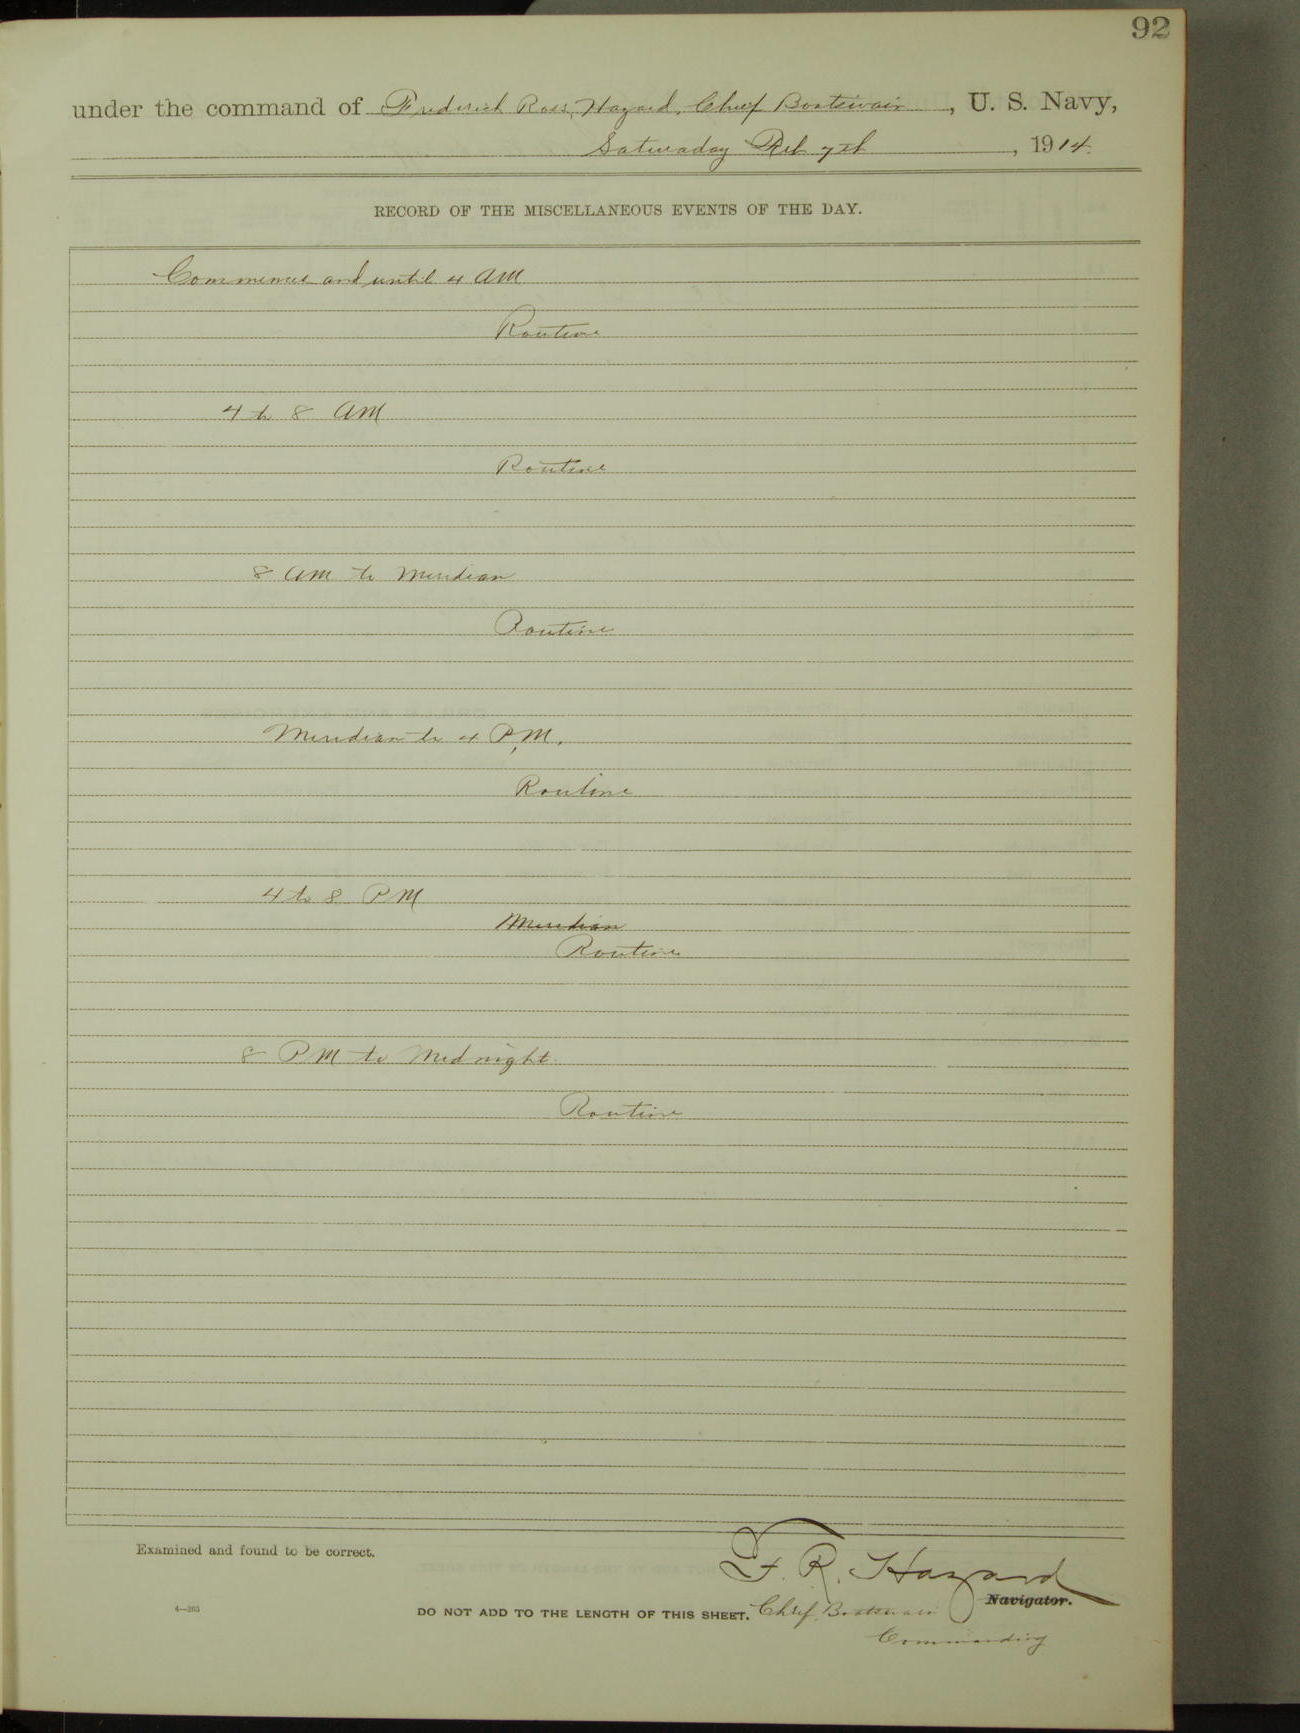 92
under the command of Frederick Ross Hazard, Chief Boatswain, U. S. Navy,
Saturaday Feb 7th, 1914.
RECORD OF THE MISCELLANEOUS EVENTS OF THE DAY.
Commences and until 4 AM
Routine
4 to 8 AM
Routine
8 AM to Meridian
Routine
Meridian to 4 P.M.
Routine
4 to 8 PM
Meridian
Routine
8 PM to Midnight
Routine
Examined and found to be correct.
F. R. Hazard
Navigator.
4—263
DO NOT ADD TO THE LENGTH OF THIS SHEET.
Chief Boatswain
Commanding